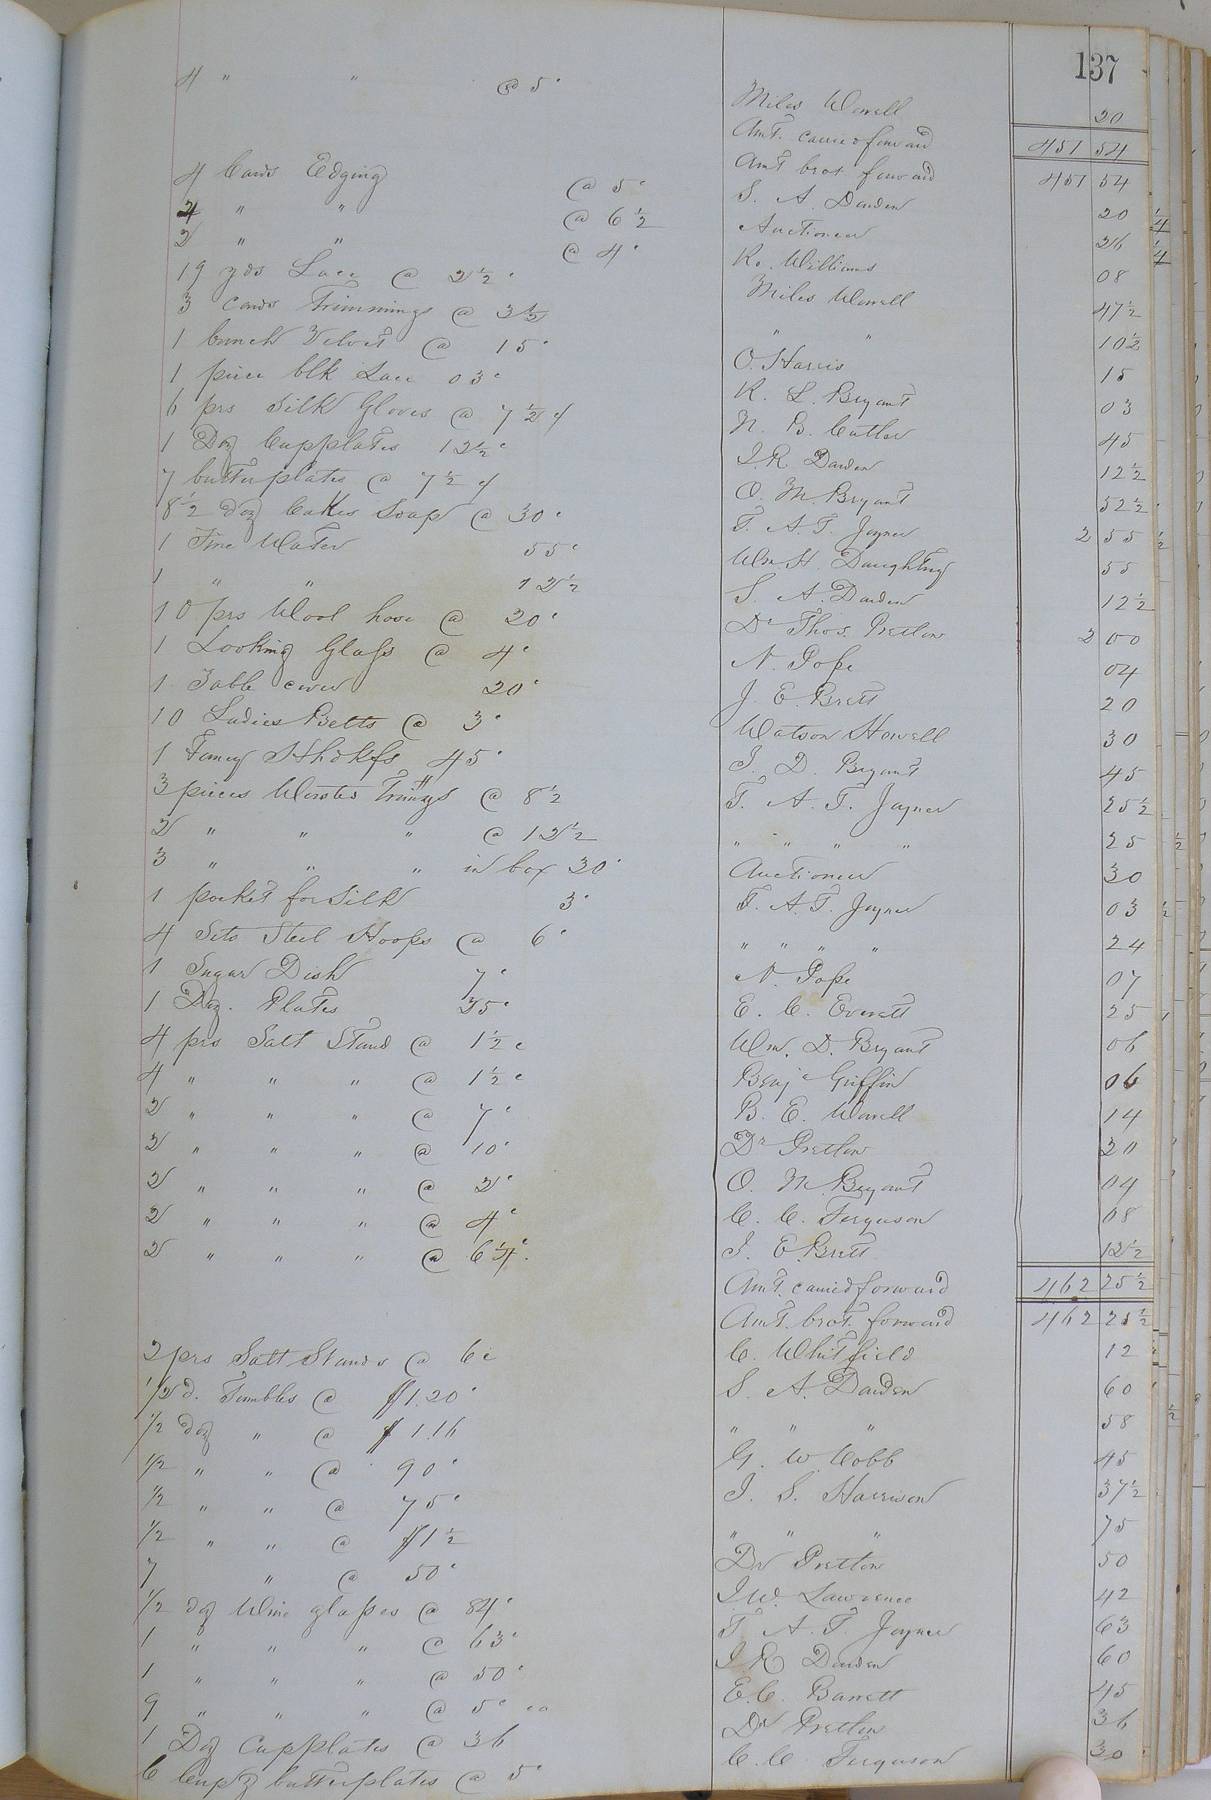 137
4 " " @ 5c Miles Worrell 20
Amt. carried forward 451 54
Amt brot forward 451 54
4 Cards Edging @ 5c S. A. Darden 20
4 " " @ 6 1/2 Auctioneer 26
2 " " @ 4c Ro. Williams 08
19 yds Lace @ 2 1/2c Miles Worrell 47 1/2
3 cards Trimmings @ 3 1/2 " " 10 1/2
1 bunch Velvet @ 15c O. Harris 15
1 piece blk Lace 03c R. L. Bryant 03
6 prs Silk Gloves @ 7 1/2 c N. B. Cutler 45
1 Doz Cupplates 12 1/2c J R Darden 12 1/2
7 butterplates @ 7 1/2 c O. M. Bryant 52 1/2
8 1/2 doz Cakes Soap @ 30c T. A. T. Joyner 2 55
1 Fine Water 55c Wm. H. Daughtry 55
1 " " 12 1/2 S. A. Darden 12 1/2
10 prs Wool hose @ 20c Dr Thos. Pretlow 2 00
1 Looking Glass @ 4c N. Pope 04
1 Table cover 20c J. E. Brett 20
10 Ladies Belts @ 3c Watson Howell 30
1 Fancy Hhdkfs 45c J. D. Bryant 45
3 pieces Worsted Trimgs @ 8 1/2 T. A. T. Joyner 25 1/2
2 " " " @ 12 1/2 " " " " 25
3 " " " in box 30c Auctioneer 30
1 pocket for Silk 3c T. A. T. Joyner 03
4 Sets Steel Hoops @ 6c " " " " 24
1 Sugar Dish 7c N. Pope 07
1 Doz. Plates 25c E. C. Everett 25
4 prs Salt Stand @ 1 1/2 c Wm. D. Bryant 06
4 " " " @ 1 1/2 c Benj Griffin 06
2 " " " @ 7c B. E. Worrell 14
2 " " " @ 10c Dr Pretlow 20
2 " " " @ 2c O. M. Bryant 04
2 " " " @ 4c C. C. Ferguson 08
2 " " " @ 6 1/4c J. E. Brett 12 1/2
Amt. carried forward 462 25 1/2
Amt. brot. forward 462 25 1/2
2 prs Salt Stands @ 6c C. Whitfield 12
1/2 d. Tumbles @ $1.20c S. A. Darden 60
1/2 doz " @ $1.16 " " " 58
1/2 " " @ 90c G. W. Cobb 45
1/2 " " @ 75c J. S. Harrison 37 1/2
1/2 " " @ $1 1/2 " " " 75
7 " @ 50c Dr Pretlow 50
1/2 doz Wine glasses @ 84c J. W. Lawrence 42
1 " " " @ 63c T. A. T. Joyner 63
1 " " " @ 50c J R Darden 60
9 " " " @ 5c ea E. C. Barrett 45
1 Doz Cupplates @ 36 Dr Pretlow 36
6 butterplates @ 5c C. C. Ferguson 30